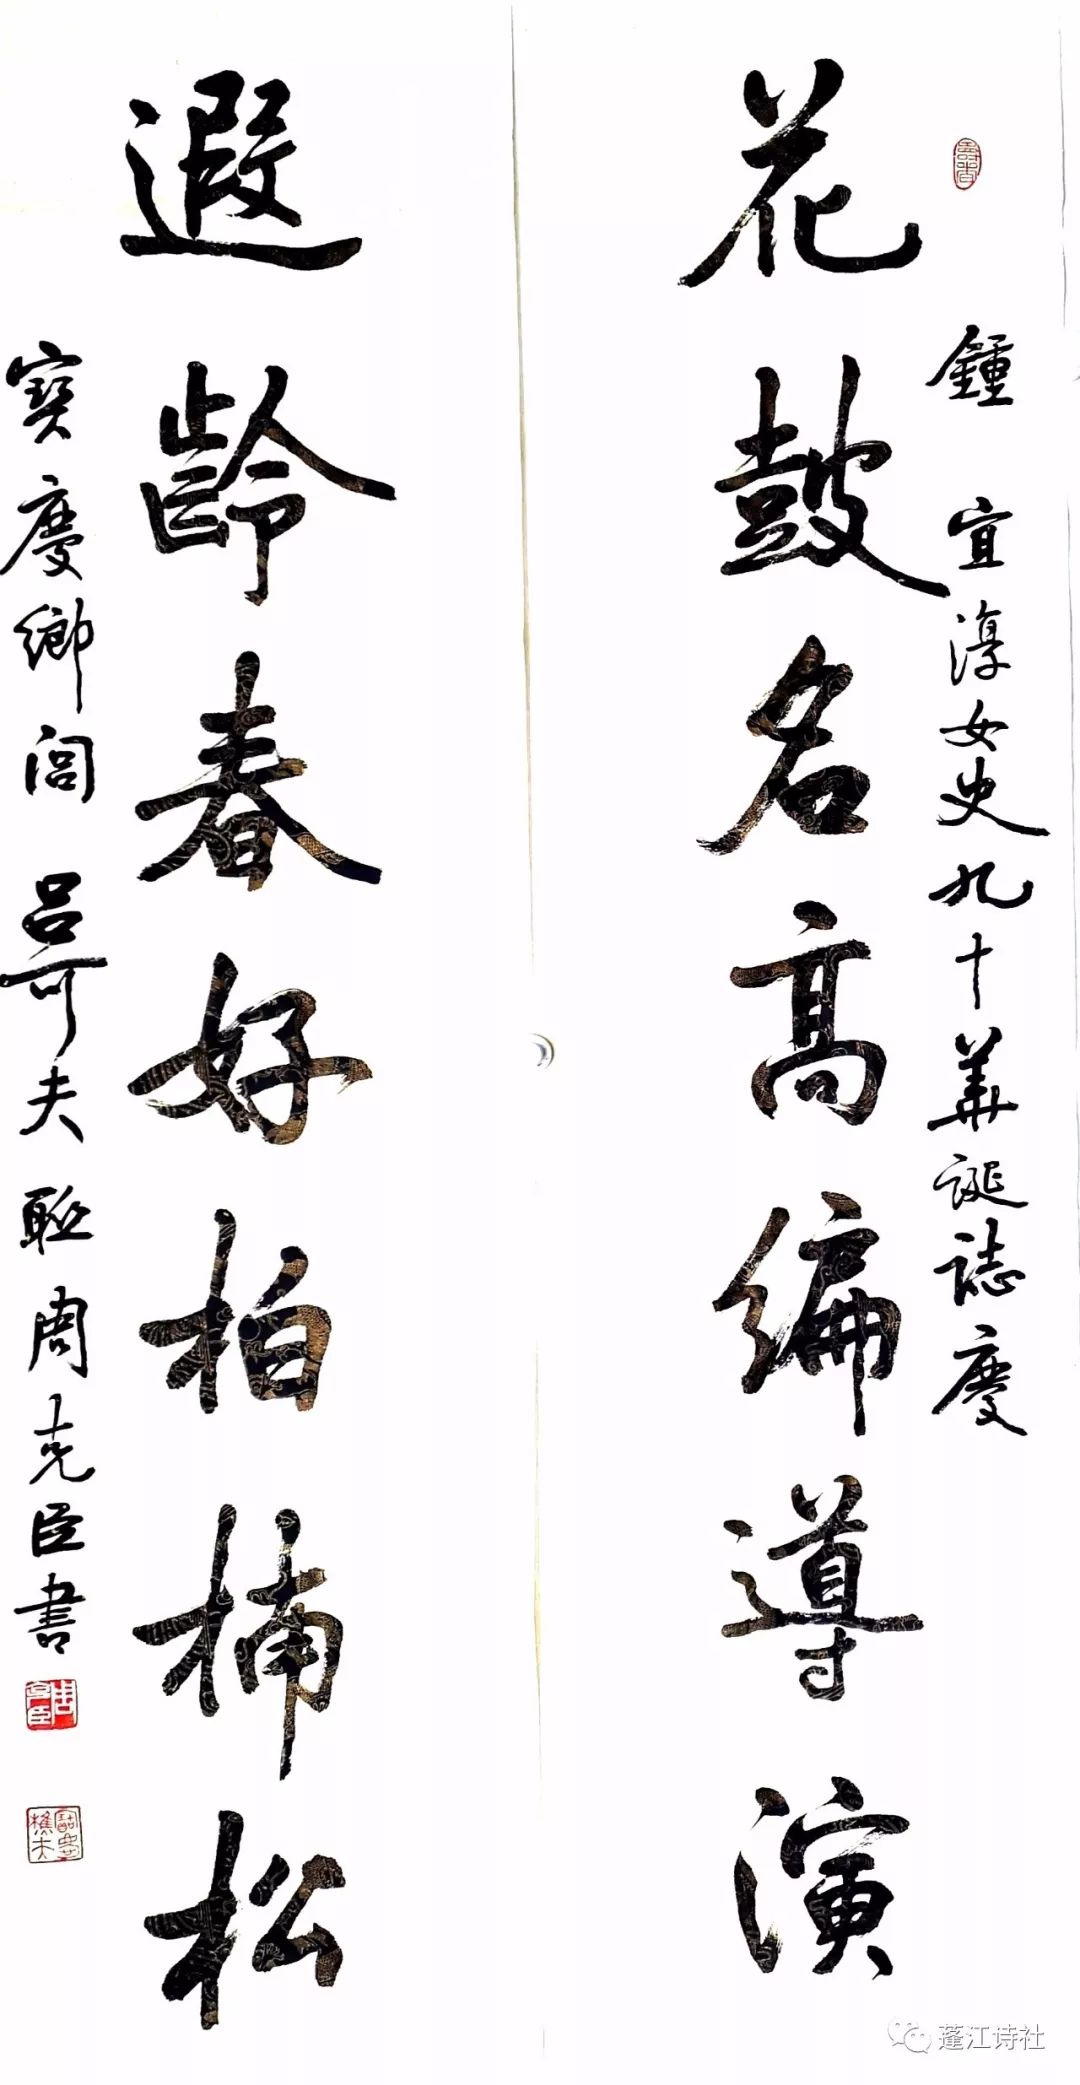 鍾宜淳女史九十華誕誌慶
花鼓名高編導演
遐齡春好柏楠松
寶慶鄉閭 呂可夫聯 周克臣書
周克臣
蓬江诗社